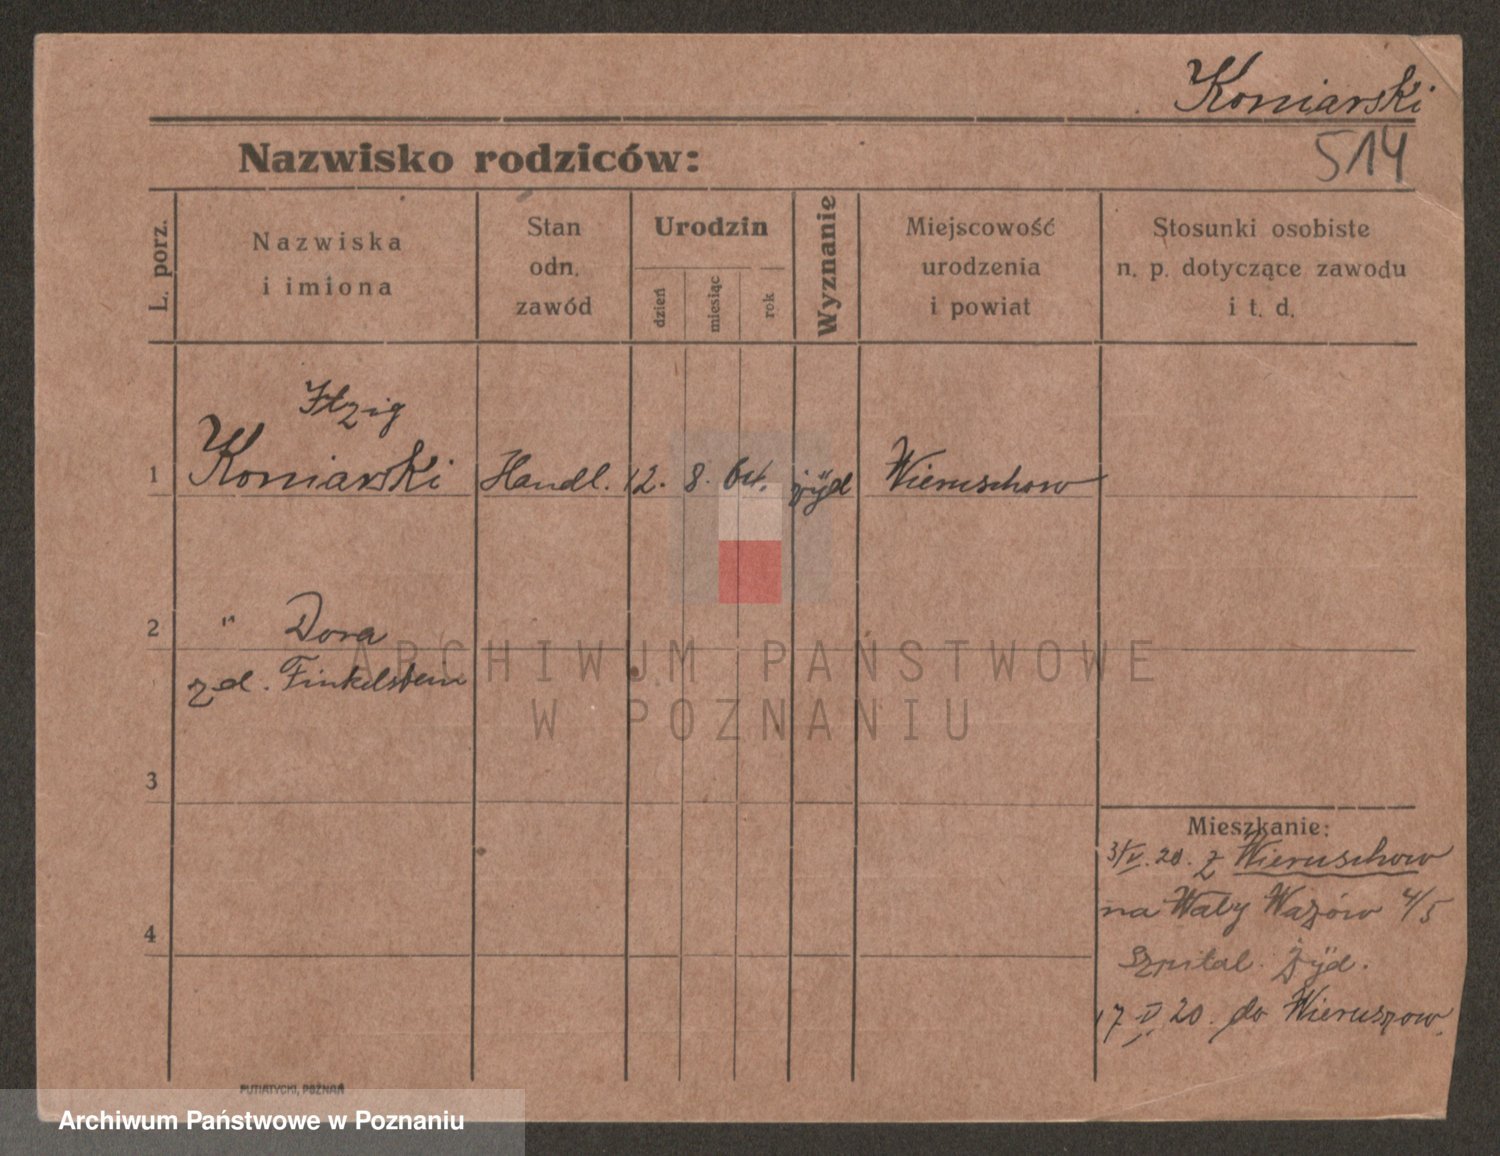 Koniarski
514
Nazwisko rodziców:
L. porz.
Nazwiska
i imiona
Stan
odn.
zawód
Urodzin
dzień
miesiąc
rok
Wyznanie
Miejscowość
urodzenia
i powiat
Stosunki osobiste
n. p. dotyczące zawodu
i t. d.
Itzig
1 Koniarski Handl. 12. 8. 64. żyd Wieruschow
2 " Dora
zd. Finkelstein
3
4
Mieszkanie:
3/V. 20. z Wieruschow
na Wały Wazów 4/5
Szpital. Żyd.
17 V 20. do Wieruszow.
ARCHIWUM PAŃSTWOWE
W POZNANIU
PUTIATYCKI, POZNAŃ
Archiwum Państwowe w Poznaniu